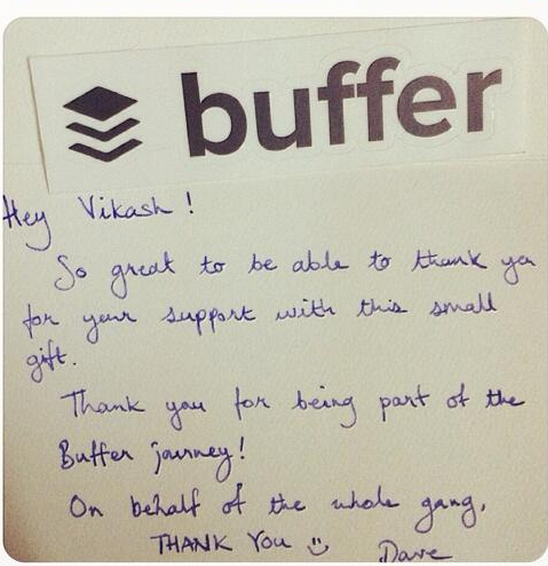 buffer
Hey Vikash !
So great to be able to thank you
for your support with this small
gift.
Thank you for being part of the
Buffer journey!
On behalf of the whole gang,
THANK YOU
Dave